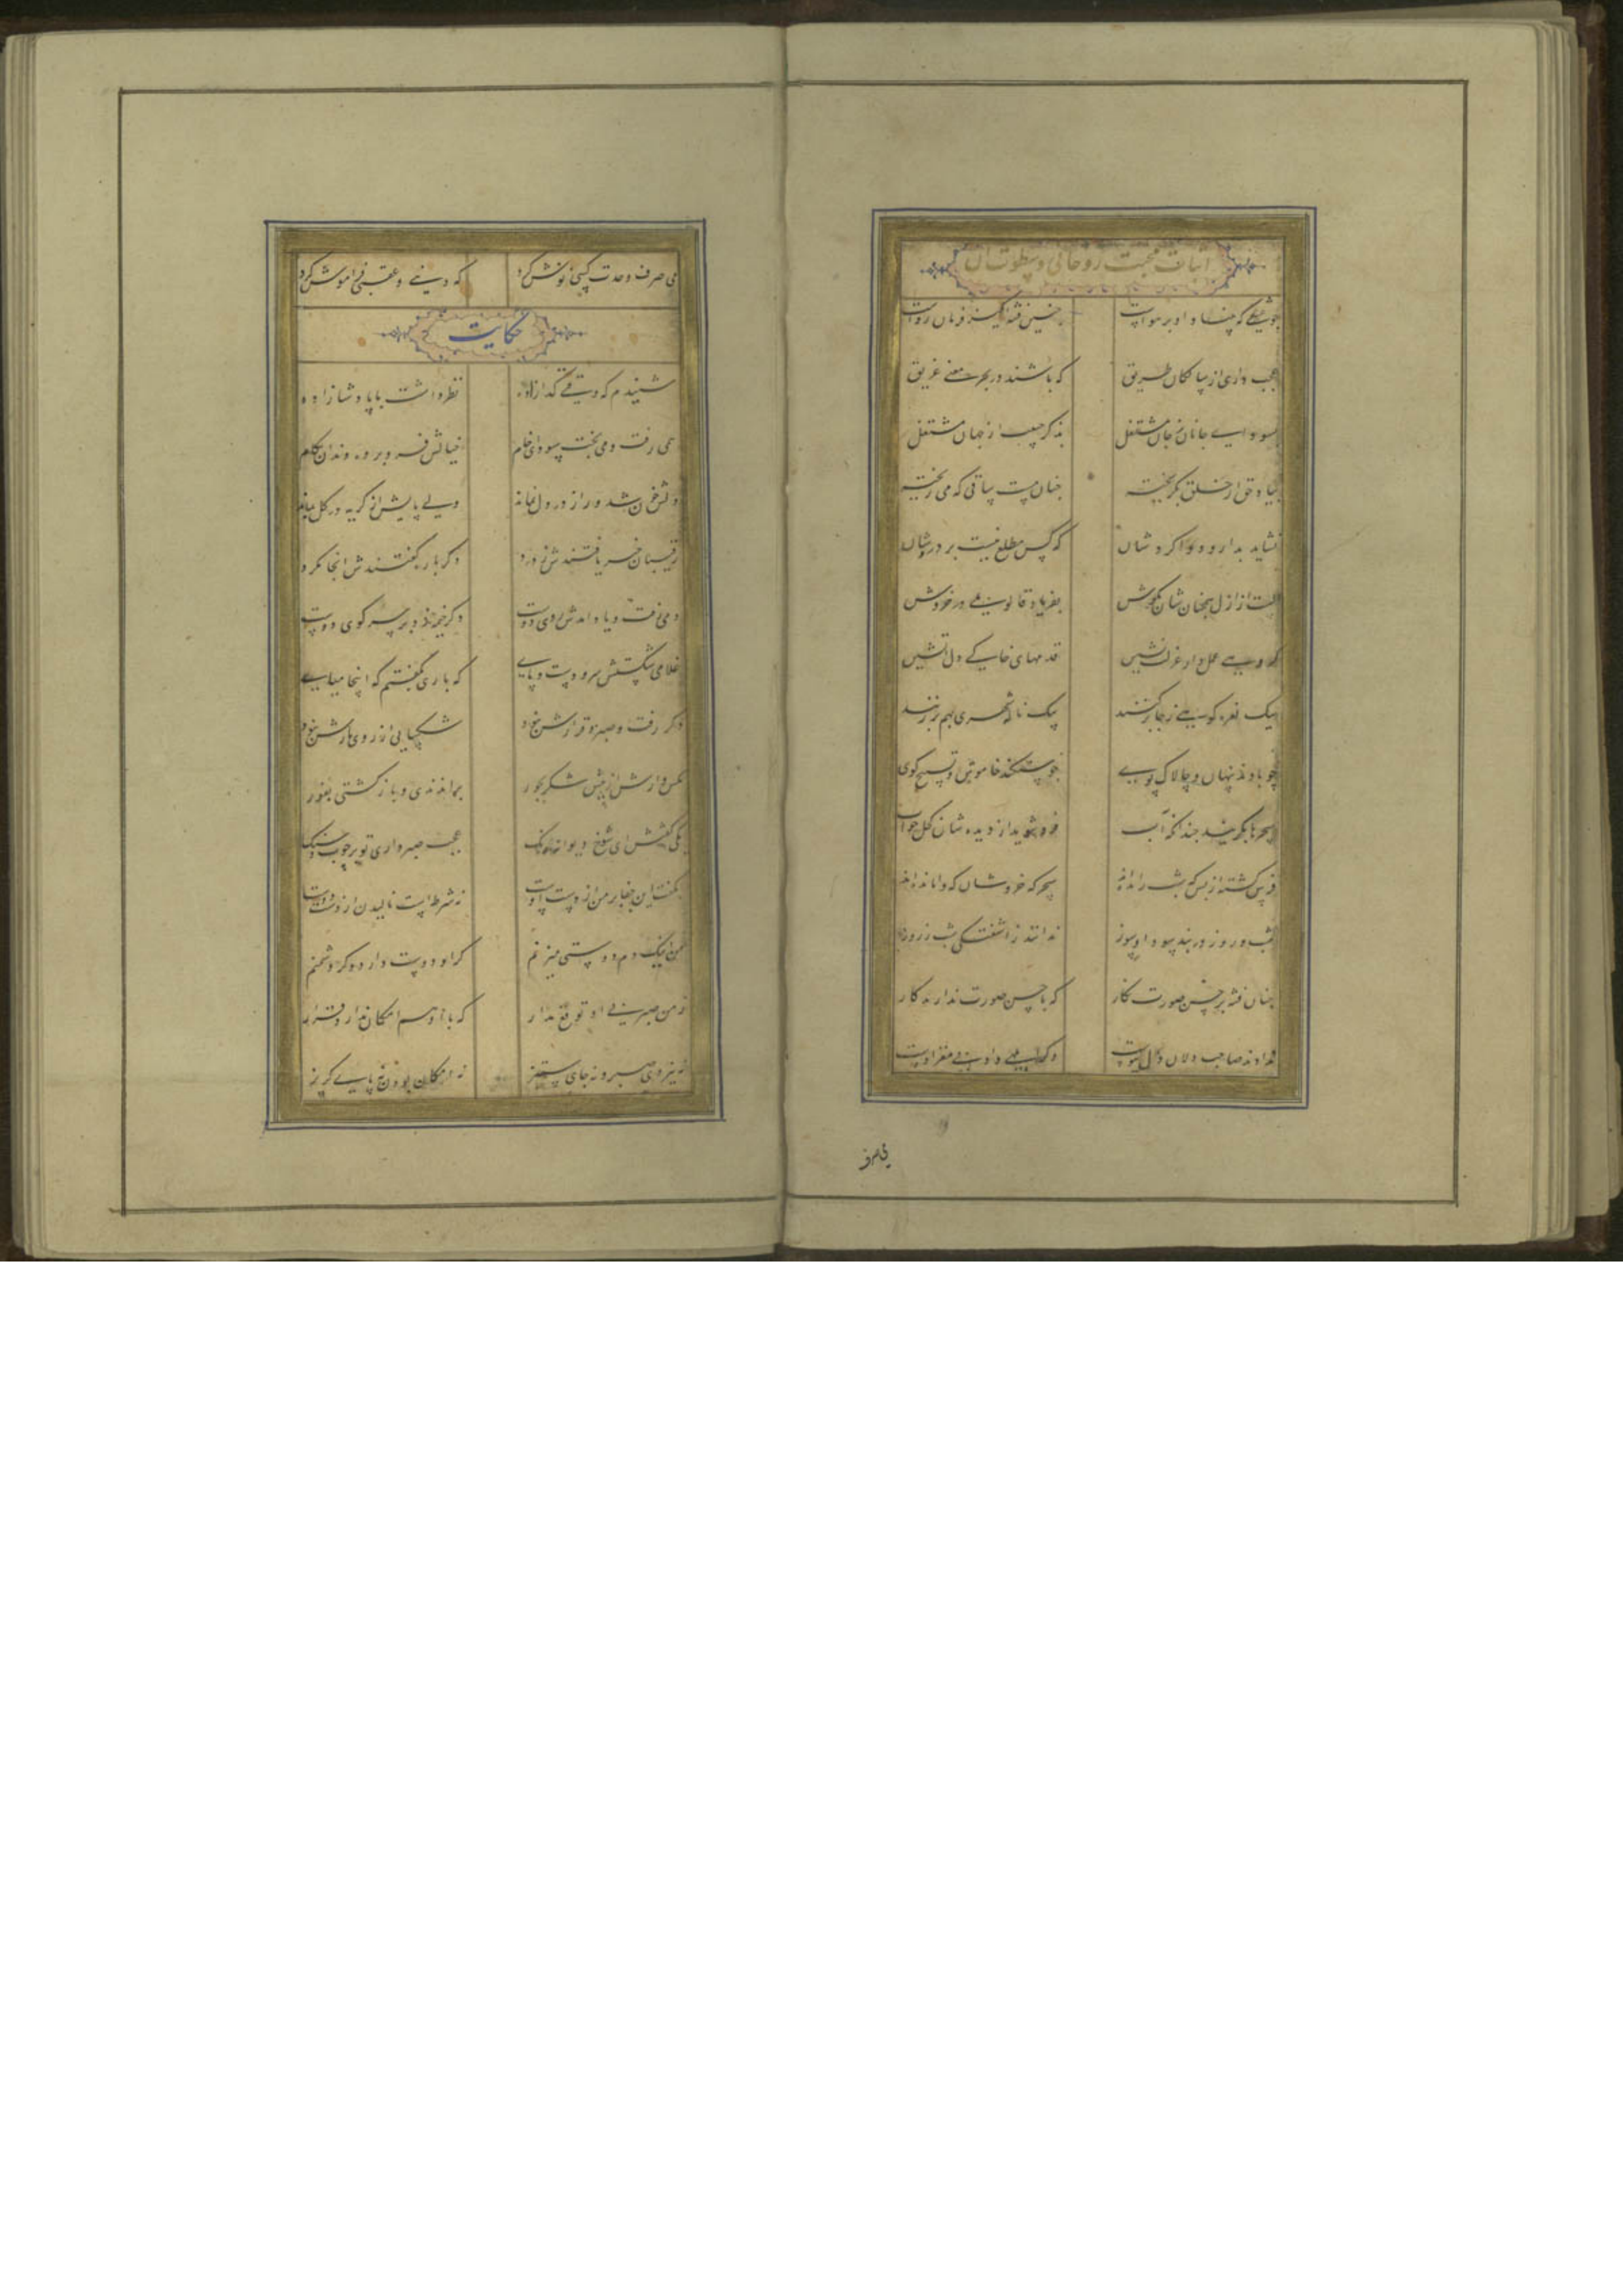 اثبات محبت روحانی و سطوت آن
چو عشقی که بنیاد او بر هواست چنین فتنه‌انگیز و فرمان رواست
عجب داری از سالکان طریق که باشند در بحر معنی غریق
بسودای جانان ز جان مشتغل بذکر حبیب از جهان مشتغل
بیاد حق از خلق بگریخته چنان مست ساقی که می ریخته
نشاید بدارو دوا کردشان که کس مطلع نیست بر دردشان
الست از ازل همچنانشان بگوش بفریاد قالوا بلی در خروش
گروهی عمل‌دار عزلت‌نشین قدمهای خاکی دل آتشین
بیک نعره کوهی ز جا برکنند بیک ناله شهری بهم برزنند
چو بادند پنهان و چالاک پوی چو سنگند خاموش و تسبیح گوی
سحرها بگریند چندانکه آب فروشوید از دیدشان کحل خواب
فرس کشته از بس که شب رانده‌اند سحرگه خروشان که وامانده‌اند
شب و روز در بند سودا و سوز ندانند ز آشفتگی شب ز روز
چنان فتنه بر حسن صورت نگار که با حسن صورت ندارند کار
ندادند صاحب دلان دل بپوست وگر ابلهی داد بی مغز اوست
می صرف
می صرف وحدت کسی نوش کرد که دنیی و عقبی فراموش کرد
حکایت
شنیدم که وقتی گدازاده نظر داشت با پادشازاده
همی رفت و می پخت سودای خام خیالش فرو برده دندان بکام
دلش خون شد و راز در دل نماند ولی پایش از گریه در گل بماند
رقیبان خبر یافتندش ز درد دگر باره گفتندش اینجا مگرد
دمی رفت و یاد آمدش روی دوست دگر خیمه زد بر سر کوی دوست
غلامی شکستش سر و دست و پای که باری نگفتم که اینجا میای
دگر رفت و صبر و قرارش نبود شکیبایی از روی یارش نبود
مگس وارش از پیش شکر بجور براندندی و بازگشتی بفور
یکی گفتش ای شوخ دیوانه رنگ عجب صبر داری تو بر چوب و سنگ
بگفت این جفا بر من از دست اوست نه شرطست نالیدن از دست دوست
من اینک دم دوستی میزنم گر او دوست دارد وگر دشمنم
ز من صبر بی او توقع مدار که با او هم امکان ندارد قرار
نه نیروی صبر و نه جای ستیز نه امکان بودن نه پای گریز